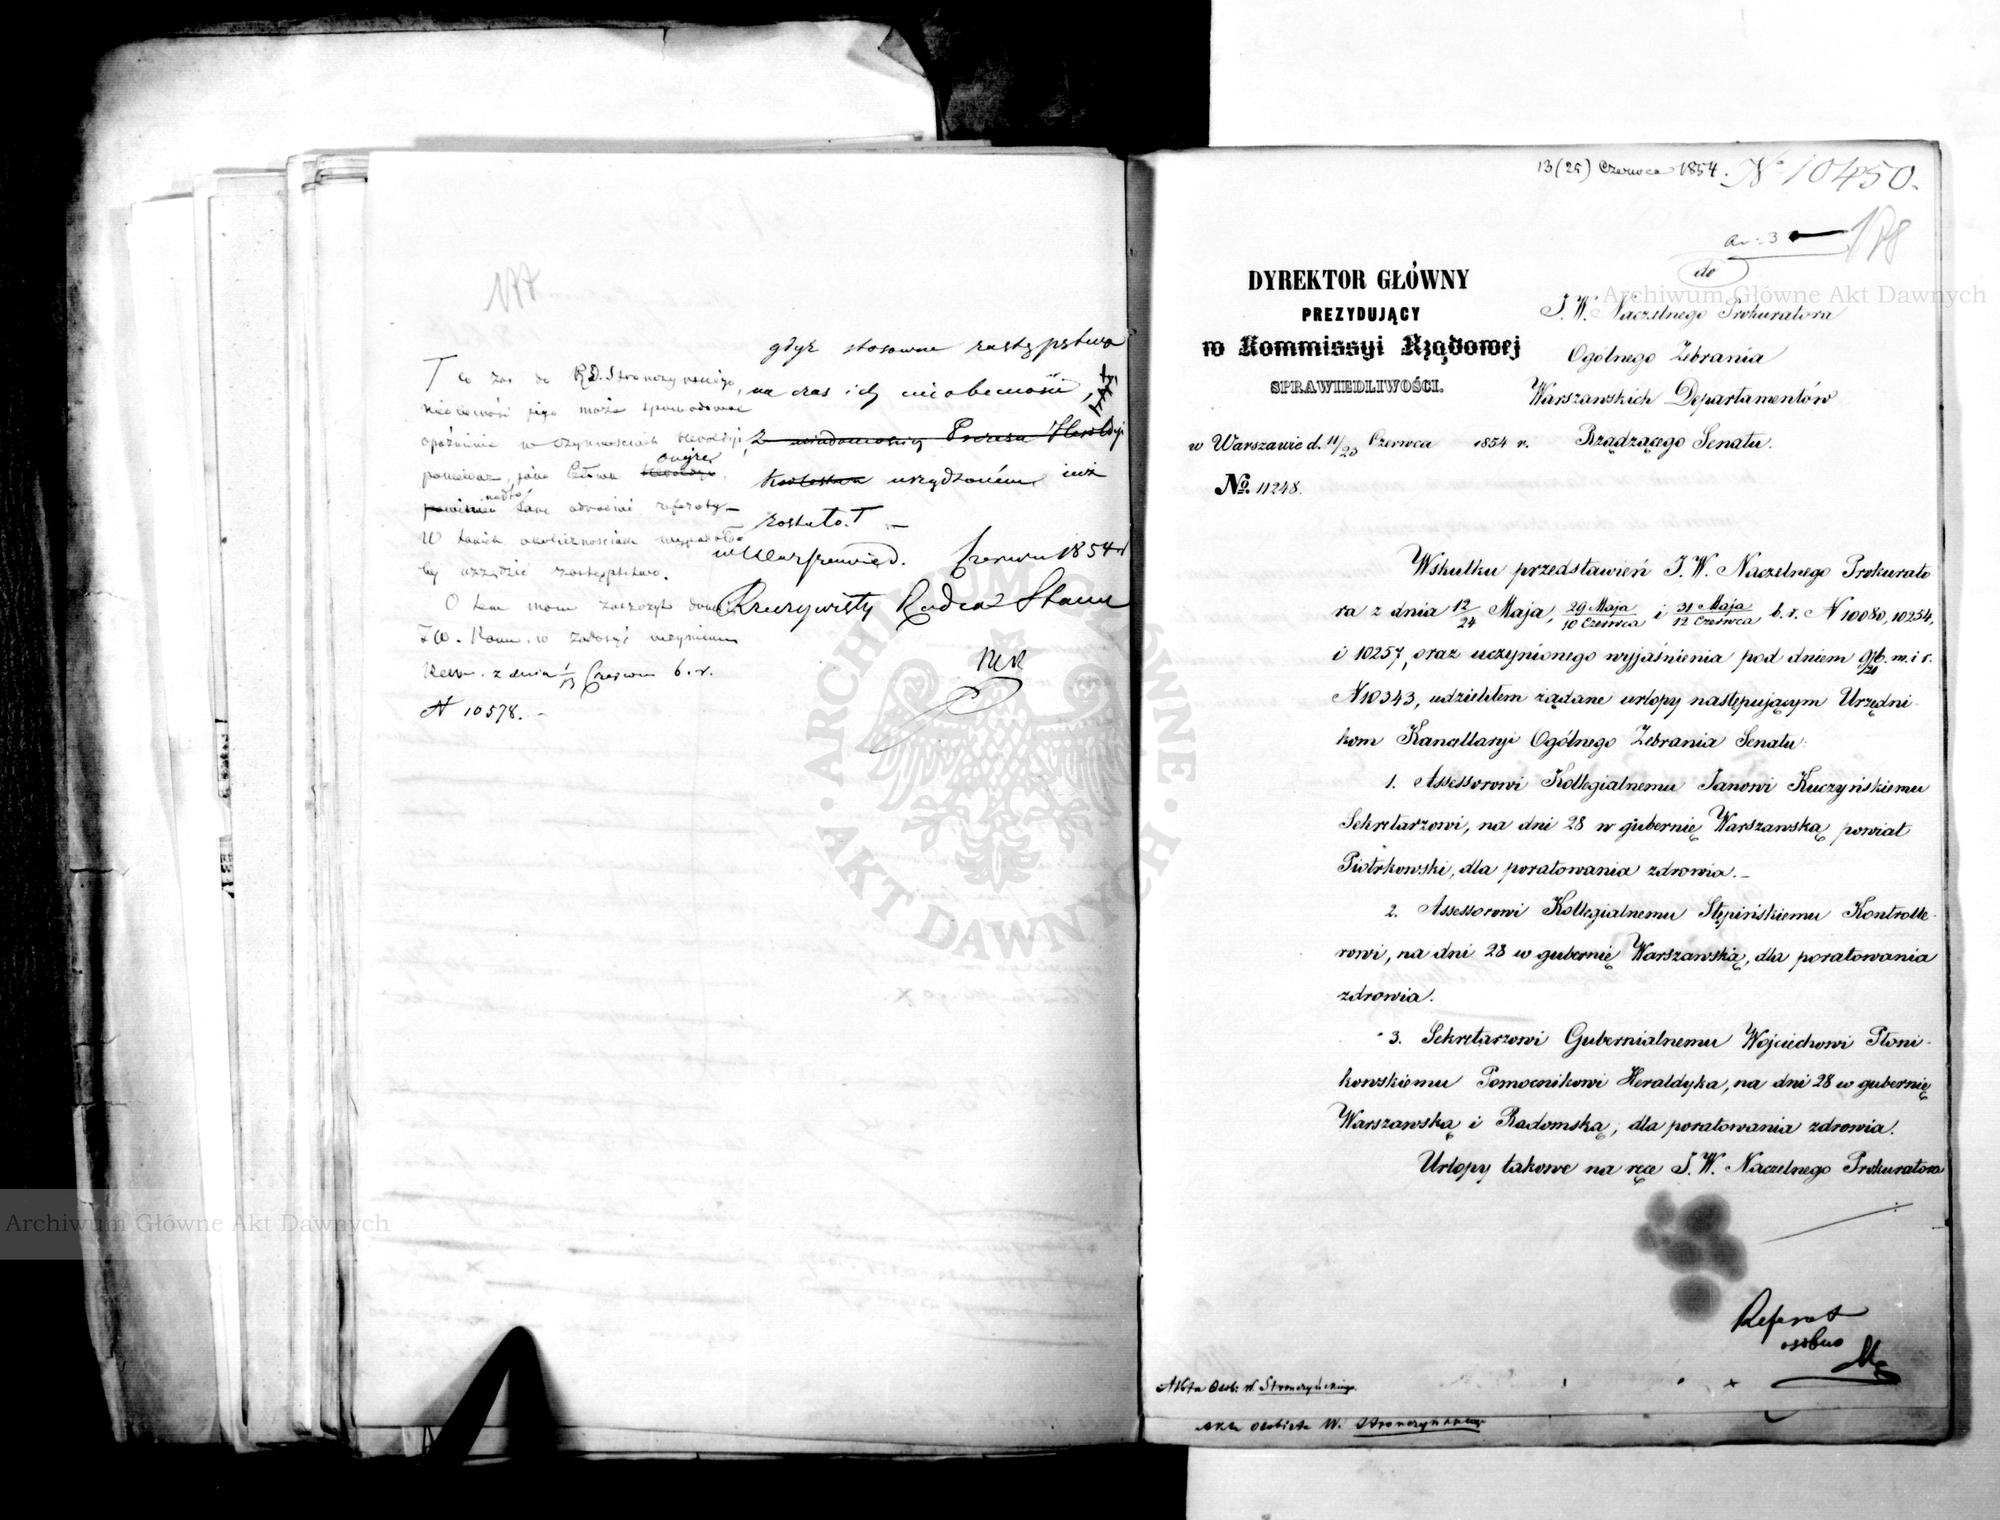 177
gdyż stosowne zastępstwo
na czas ich nieobecności,
z wiadomością Prezesa Heroldyi
urządzonem już
zostało. T —
w Warszawie d. Czerwca 1854 r.
Rzeczywisty Radca Stanu
T Co zaś do RD. Stronczyńskiego,
nieobecność jego może spowodować
opóźnienie w czynnościach Heroldyi,
ponieważ, jako Członek
nadto
referaty —
W takich okolicznościach
by urządzić zastępstwo.
O tem mam zaszczyt
J.W. w zadosyć uczynieniu
z dnia 1/13 Czerwca b. r.
N 10578. —
13 (25) Czerwca 1854. No 10450.
178
do
DYREKTOR GŁÓWNY
PREZYDUJĄCY
w Kommissyi Rządowej
SPRAWIEDLIWOŚCI.
w Warszawie d. 11/23 Czerwca 1854 r.
No. 11248.
J. W. Naczelnego Prokuratora
Ogólnego Zebrania
Warszawskich Departamentów
Rządzącego Senatu.
Wskutku przedstawień J. W. Naczelnego Prokurato
ra z dnia 12/24 Maja, 29 Maja/10 Czerwca i 31 Maja/12 Czerwca b. r. N 10080, 10254,
i 10257, oraz uczynionego wyjaśnienia pod dniem 9/21 b. m. i r.
N 10343, udzieliłem żądane urlopy następującym Urzędni-
kom Kancellaryi Ogólnego Zebrania Senatu:
1. Assessorowi Kollegialnemu Janowi Kuczyńskiemu
Sekretarzowi, na dni 28 w gubernię Warszawską powiat
Piotrkowski, dla poratowania zdrowia. —
2. Assessorowi Kollegialnemu Stępińskiemu Kontrolle-
rowi, na dni 28 w gubernię Warszawską, dla poratowania
zdrowia.
3. Sekretarzowi Gubernialnemu Wojciechowi Płoni-
kowskiemu Pomocnikowi Heraldyka, na dni 28 w gubernię
Warszawską i Radomską, dla poratowania zdrowia.
Urlopy takowe na ręce J. W. Naczelnego Prokuratora
Referat
osobno
Akta Osob: W. Stronczyńskiego.
Akta osobiste W. Stronczyńskiego
Archiwum Główne Akt Dawnych
Archiwum Główne Akt Dawnych
ARCHIWUM GŁÓWNE · AKT DAWNYCH ·